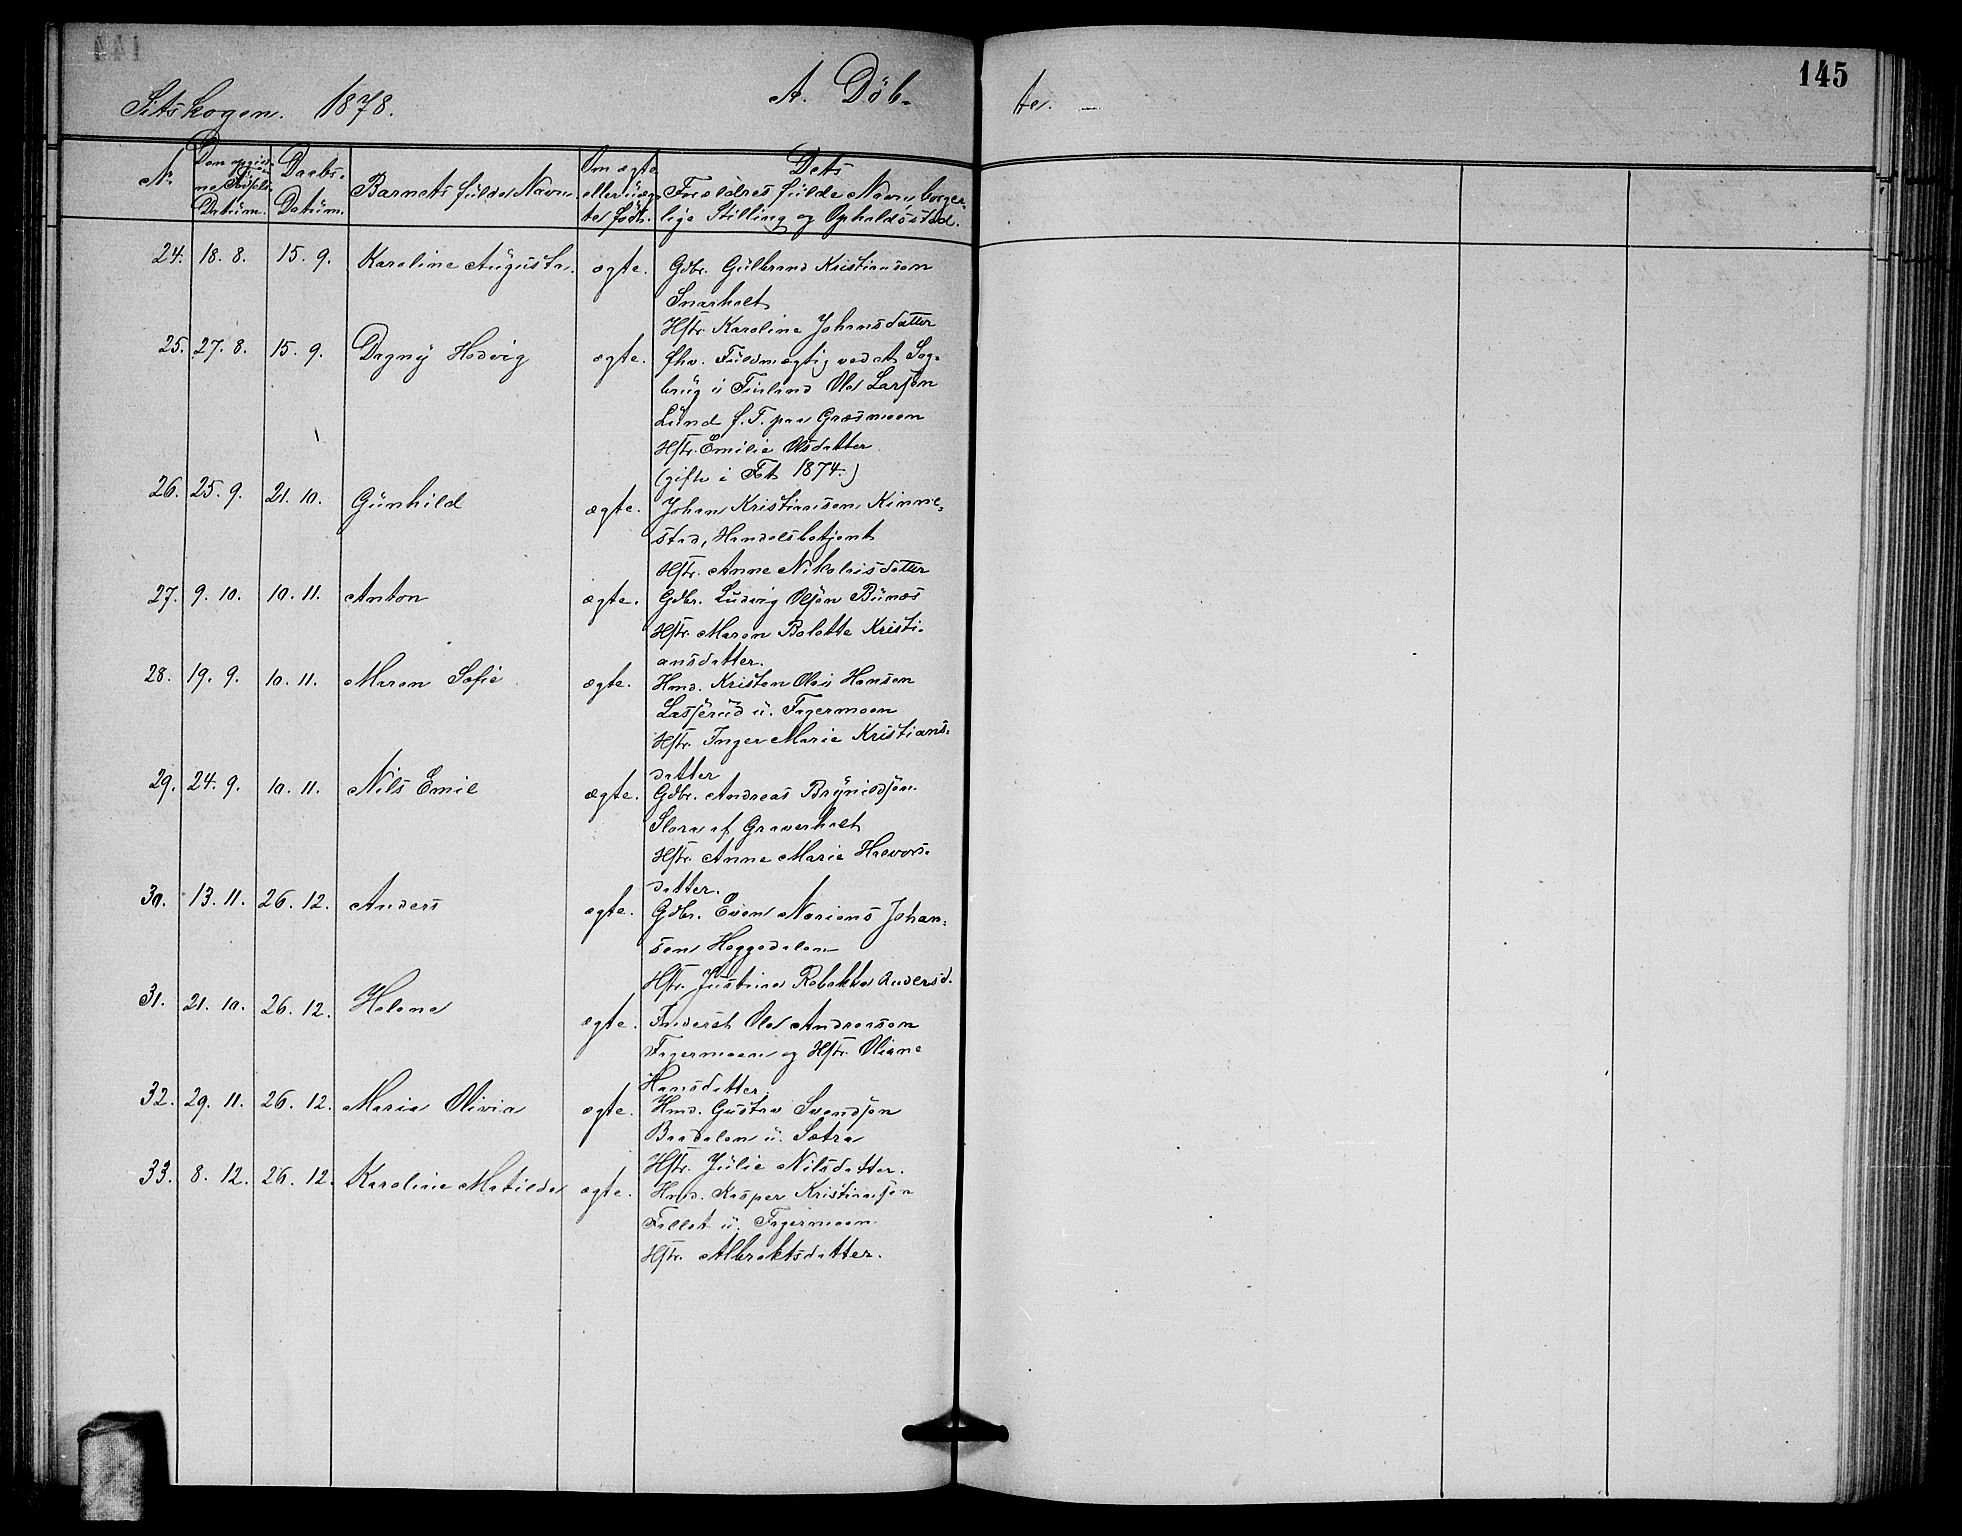 145
Setskogen. 1878. A. Döb- te.
No
Den opgiv-
ne Födsels-
Datum.
Daabs-
Datum.
Barnets fulde Navn.
Om ægte
eller uæg-
te født.
Dets
Forældres fulde Navn, borger-
lige Stilling og Opholdssted.
24. 18. 8. 15. 9. Karoline Augusta. ægte. Gdbr. Gulbrand Kristiansen
Snarholt
Hstr. Karoline Johansdatter
25. 27. 8. 15. 9. Dagny Hedvig ægte. fhv. Fuldmægtig ved et Sag-
brug i Finland Ole Larsen
Lund f. T. paa Græsmoen
Hstr. Emilie Olsdatter
(gifte i Fet 1874.)
26. 25. 9. 21. 10. Gunhild ægte. Johan Kristiansen Kinne-
stad, Handelsbetjent
Hstr. Anne Nikolaisdatter
27. 9. 10. 10. 11. Anton ægte. Gdbr. Ludvig Olsen Bunæs
Hstr. Maren Bolette Kristi-
ansdatter.
28. 19. 9. 10. 11. Maren Sofie ægte. Hmd. Kristen Olai Hansen
Lasserud u. Fagermoen
Hstr. Inger Marie Kristians-
datter
29. 24. 9. 10. 11. Nils Emil ægte. Gdbr. Andreas Brynildsen
Slora af Graverholt
Hstr. Anne Marie Halvors-
datter.
30. 13. 11. 26. 12. Anders ægte. Gdbr. Even Johan-
sen Heggedalen
Hstr. Justine Rebekka Andersd.
31. 21. 10. 26. 12. Helene ægte. Inderst Ole Andreasen
Fagermoen og Hstr. Oliane
Hansdatter.
32. 29. 11. 26. 12. Maria Olivia ægte. Hmd. Gustav Svendsen
Baadalen u. Sætra
Hstr. Julie Nilsdatter.
33. 8. 12. 26. 12. Karoline Matilde ægte. Hmd. Kasper Kristiansen
Fallet u. Fagermoen
Hstr. Albrektsdatter.